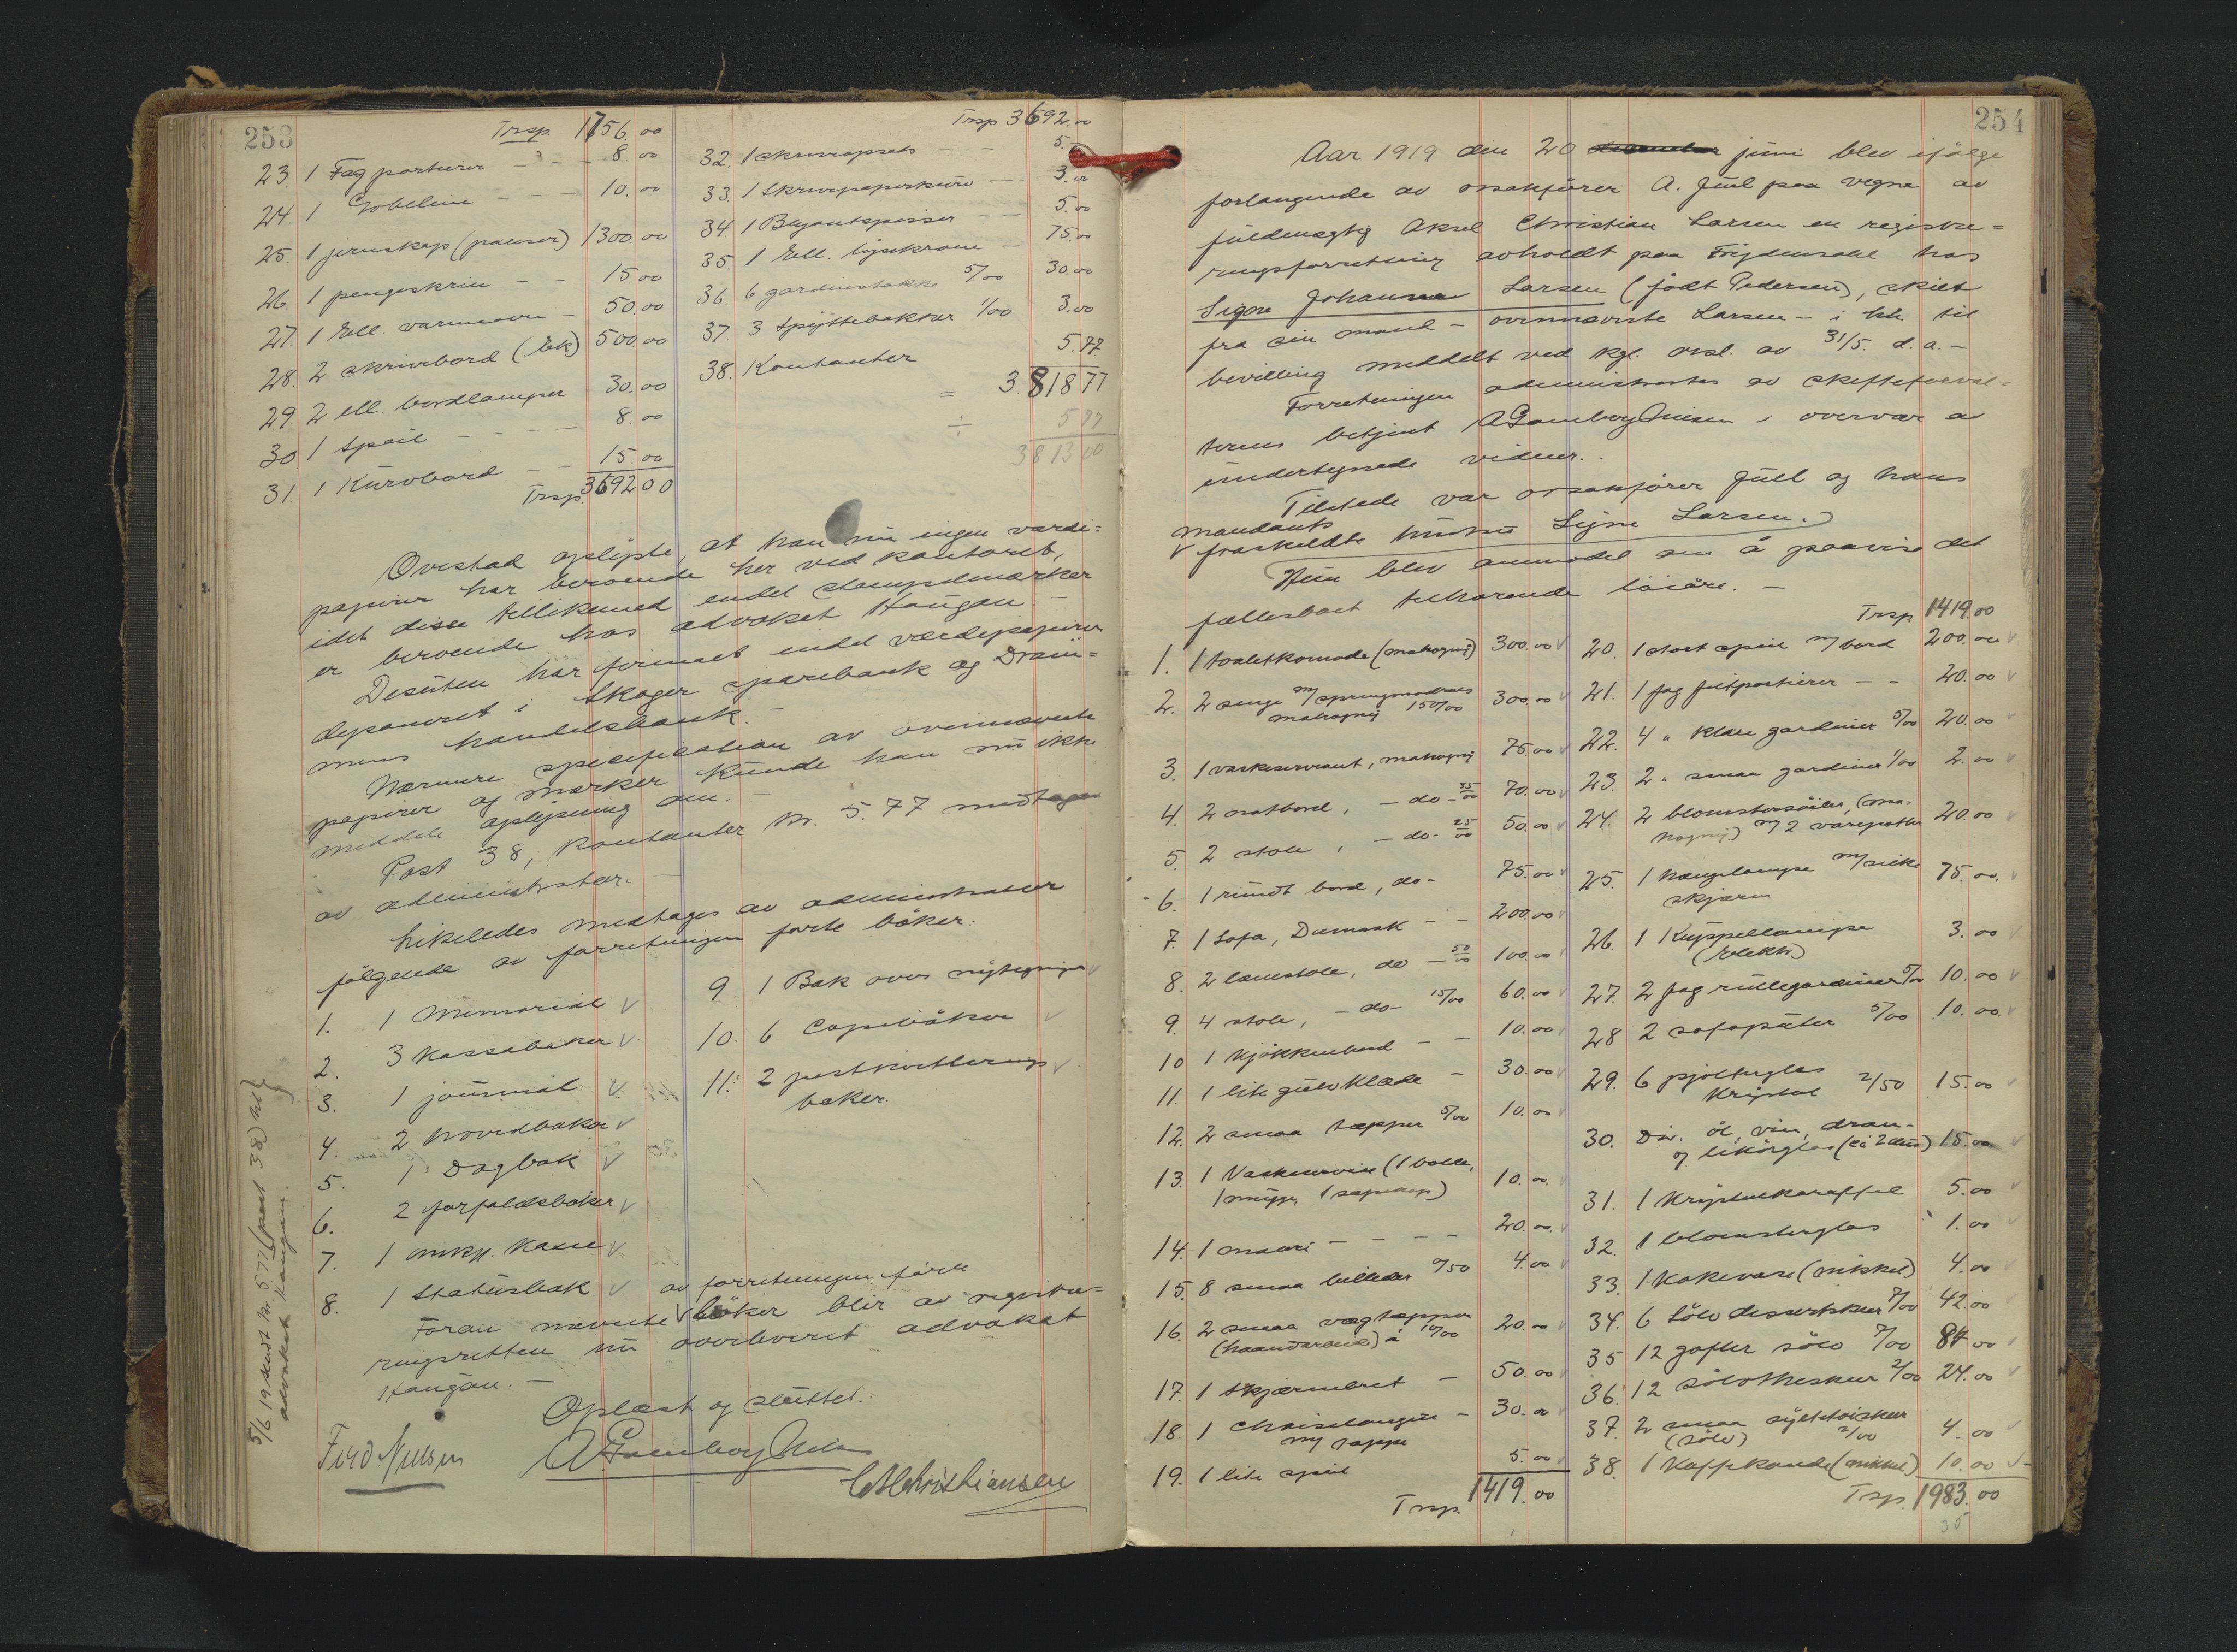 253
Trsp. 1756.00
23. 1 Fag portierer - - - 8.00
24. 1 Gobelin - - - 10.00
25. 1 jernskap (panser) 1300.00
26. 1 pengeskrin - - 15.00
27. 1 Ell. varmeovn - 50.00
28. 2 skrivebord (Ek) 500.00
29. 2 ell. bordlamper 30.00
30 1 Speil - - - - 8.00
31. 1 Kurvbord - - 15.00
Trsp. 3692 00
Trsp 3692.00
32. 1 skriveopsats - - 5.-
33. 1 Skrivepapirkurv - 3.00
34. 1 Blyantspisser - - 5.00
35. 1 Ell. lysekrone - 75.00
36. 6 gardinstokke 5/00 30.00
37. 3 Spyttebakker 1/00 3.00
38. Kontanter 5.77
= 3.818 77
÷ 5 77
3813 00
Ovestad oplyste, at han nu ingen værdi=
papirer har beroende her ved kontoret,
idet disse tillikemed endel stempelmærker
er beroende hos advokat Haugan. -
Desuten har firmaet endel værdipapirer
deponeret i Skoger sparebank og Dram=
mens handelsbank. -
Nærmere specifikation av ovennævnte
papirer og mærker kunde han nu ikke
meddele oplysning om. -
Post 38, kontanter kr. 5.77 medtages
av administrator. -
Likeledes medtages av administrator
følgende av forretningen førte bøker:
1. 1 Memorial ✓
2. 3 Kassabøker ✓
3. 1 journal ✓
4. 2 hovedbøker ✓
5. 1 Dagbok ✓
6. 2 forfaldsbøker ✓
7. 1 omkp. Kasse ✓
8. 1 Statusbok ✓
9 1 Bok over nytegninger ✓
10. 6 Copibøker ✓
11. 2 postkvitterings ✓
bøker.
av forretningen førte
Foran nævnte ✓ bøker blir av registre=
ringsretten nu overleveret advokat
Haugan. -
Oplæst og sluttet.
Ferd Nielsen A Gamborg Nilsen
C A Christiansen
5/6. 19 sendt kr. 577 (post 38) til
advokat Haugan.
254
Aar 1919 den 20 juni blev ifølge
forlangende av orsakfører A. Juul paa vegne av
fuldmægtig Aksel Christian Larsen en registre=
ringsforretning avholdt paa Frydensdal hos
Signe Johanna Larsen (født Pedersen), skilt
fra sin mand - ovennævnte Larsen - i hht til
bevilling meddelt ved kgl. resl. av 31/5. d.a. -
Forretningen administrertes av skifteforval=
terens betjent A Gamborg Nilsen i overvær av
undertegnede vidner.
Tilstede var orsakfører Juul og hans
mandants
✓ fraskildte hustru Signe Larsen.
Hun blev anmodet om å paavise det
fællesboet tilhørende løsøre. -
1. 1 toaletkomode (mahogny) 300.00 ✓
2. 2 senge m/ springmadrass
mahogny 150/00 300.00 ✓
3. 1 vaskeservant, mahogny 75.00 ✓
4. 2 natbord, - do - 35/00 70.00 ✓
5 2 stole, - do - 25/00 50.00 ✓
6. 1 rundt bord, do - 75.00 ✓
7. 1 Sofa, Damask - - 200.00 ✓
8. 2 lænstole, do - 50/00 100.00 ✓
9. 4 stole, - do - 15/00 60.00 ✓
10 1 kjøkkenbord - - 10.00 ✓
11. 1 lite gulvklæde - 30.00 ✓
12. 2 smaa tæpper 5/00 10.00 ✓
13. 1 Vaskeservise (1 bolle,
1 mugge, 1 sæpekop) 10.00
14. 1 maleri - - - - 20.00 ✓
15. 8 smaa billeder 0/50 4.00 ✓
16. 2 smaa vægtæpper
(haandarbeide) á 10/00 20.00 ✓
17. 1 Skjærmbret - 50.00 ✓
18. 1 Chaiselongue - 30.00 ✓
m/ tæppe
19. 1 lite speil 5.00 ✓
Trsp. 1419.00
Trsp 1419.00
20. 1 stort speil m/ bord 200.00 ✓
21. 1 fag filtportierer - - 20.00 ✓
22. 4 " klare gardiner 5/00 20.00 ✓
23. 2 " smaa gardiner 1/00 2.00 ✓
24. 2 blomstersøiler, (ma-
hogny) m/ 2 varepotter 20.00 ✓
25. 1 hængelampe m/ silke
skjærm 75.00. ✓
26. 1 Kuppellampe
(elektr.) 3.00 ✓
27. 2 fag rullegardiner 5/00 10.00 ✓
28 2 sofaputer 5/00 10.00. ✓
29. 6 pjolterglas
krystal 2/50 15.00 ✓
30. Div. øl, vin, dram-
og likørglas (ca 2 dus) 15.00 ✓
31. 1 Krystalkaraffel 5.00 ✓
32. 1 blomsterglas 1.00 ✓
33. 1 Kakevase (nikkel) 4.00 ✓
34. 6 Sølv dessertskeer 7/00 42.00 ✓
35 12 gafler sølv 7/00 84 00 ✓
36. 12 sølvtheskeer 2/00 24.00 ✓
37. 2 smaa syltetøiskeer
(sølv) 2/00 4.00 ✓
38. 1 Kaffekande (nikkel) 10.00 ✓
Trsp. 1983.00
35